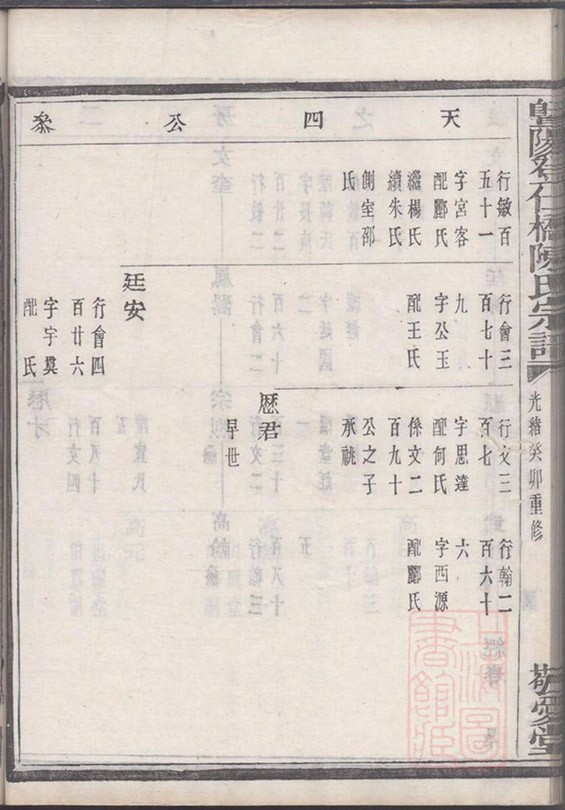 暨陽登仁橋陳氏宗譜
光緒癸卯重修
敬愛堂
天四公叅
行敏百
五十一
字宮客
配酈氏
繼楊氏
續朱氏
側室邵
氏
行會三
百七十
九
字公玉
配王氏
廷安
行會四
百廿六
字宇奠
配 氏
行文三
百七
字思達
配何氏
係文二
百九十
公之子
承祧
厯君
早世
行翰二
百六十
六
字西源
配酈氏
上海圖書館藏